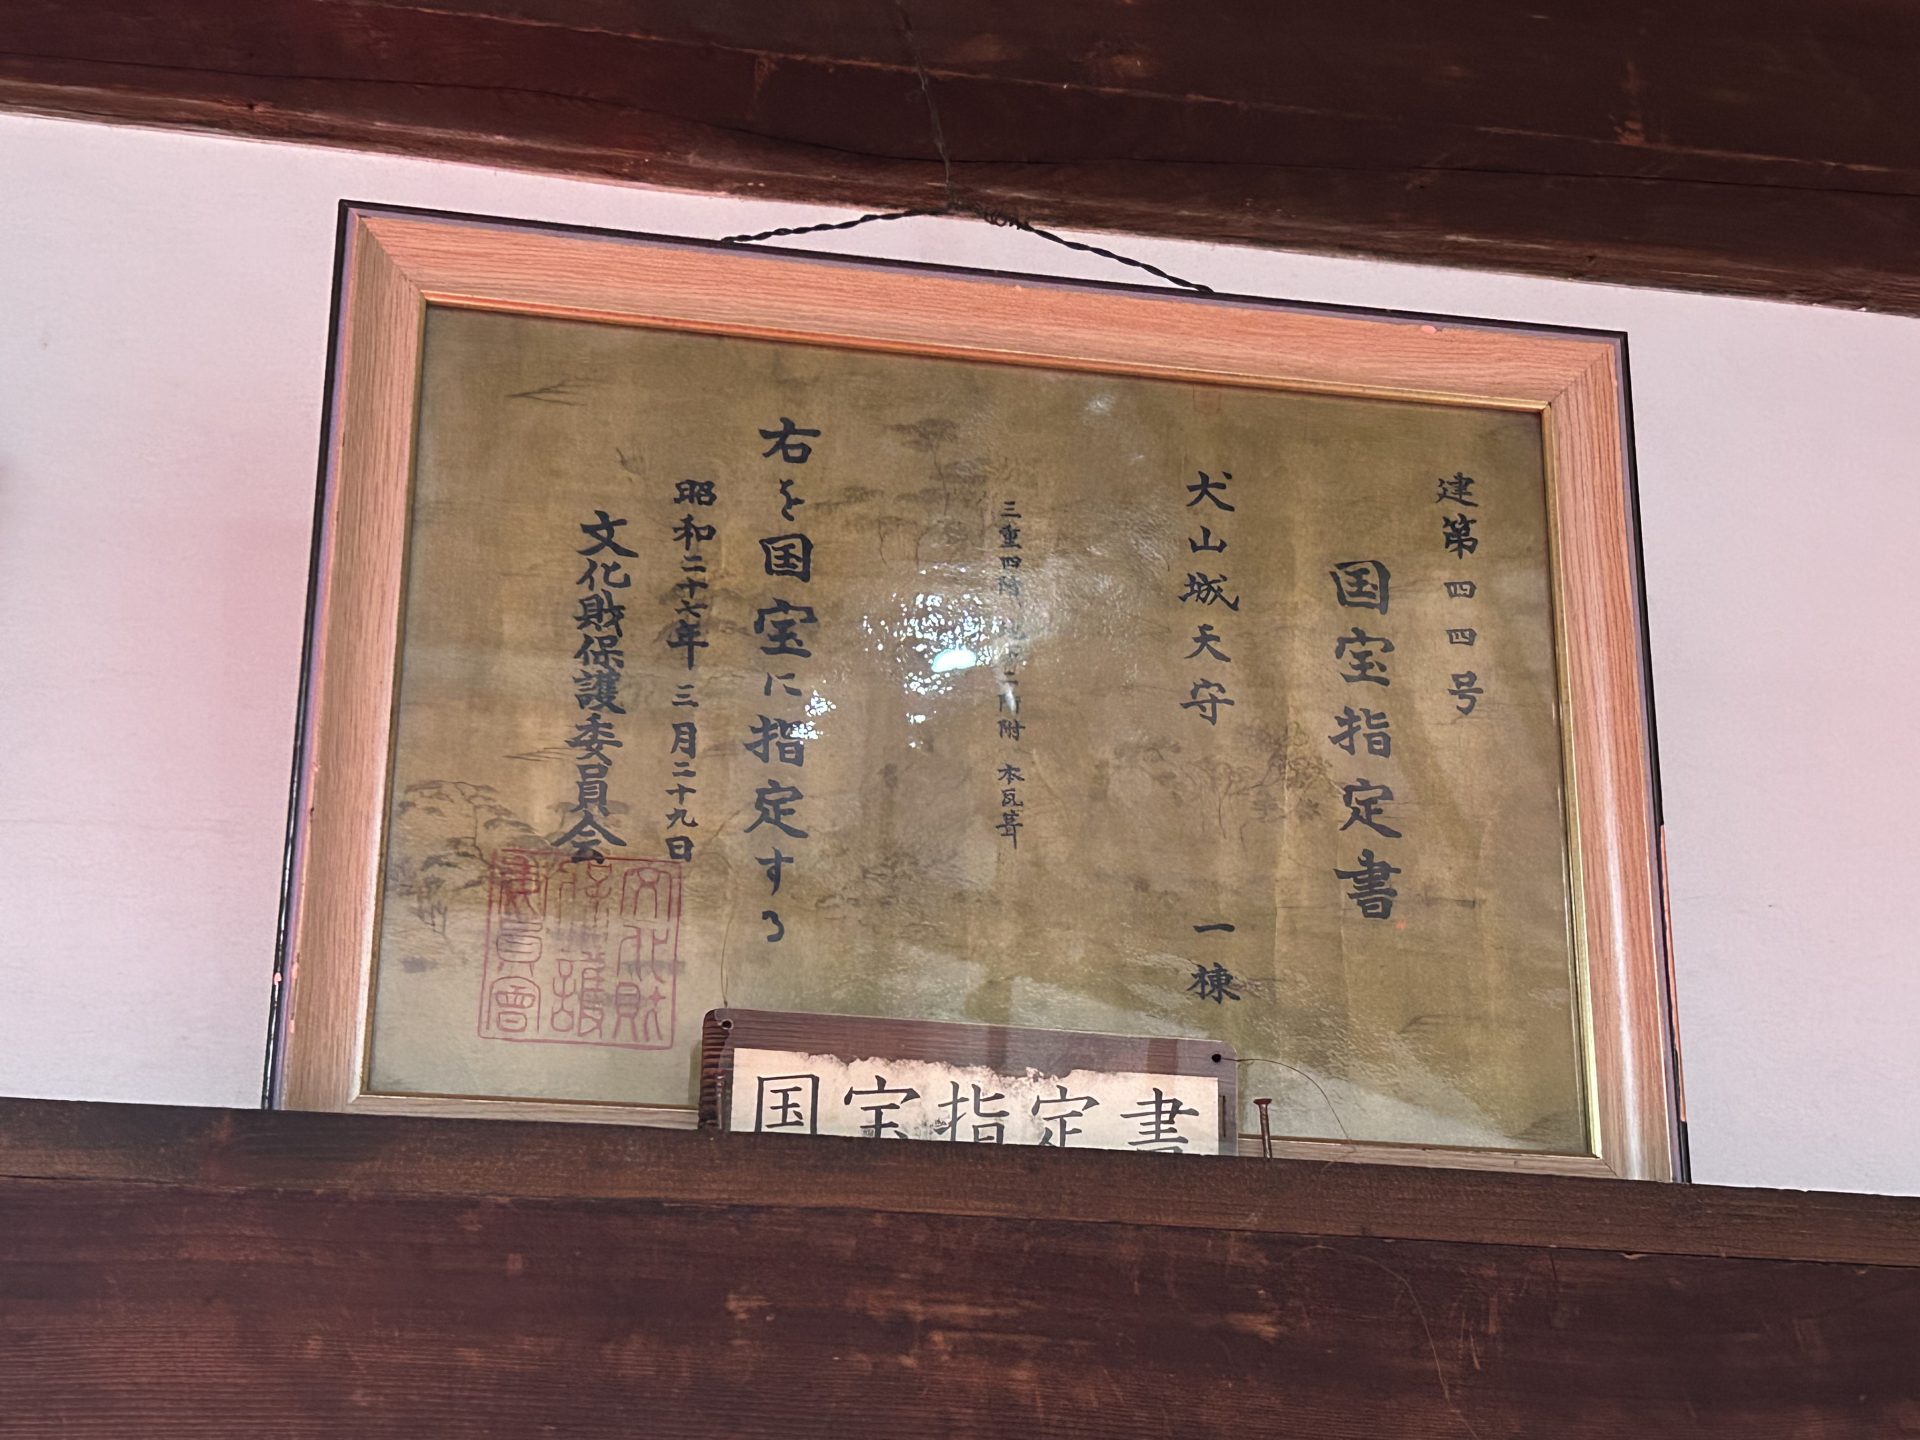 建第四四号
国宝指定書
犬山城天守 一棟
三重四階、地下二階附 本瓦葺
右を国宝に指定する
昭和二十七年三月二十九日
文化財保護委員会
文化財保護委員會
国宝指定書